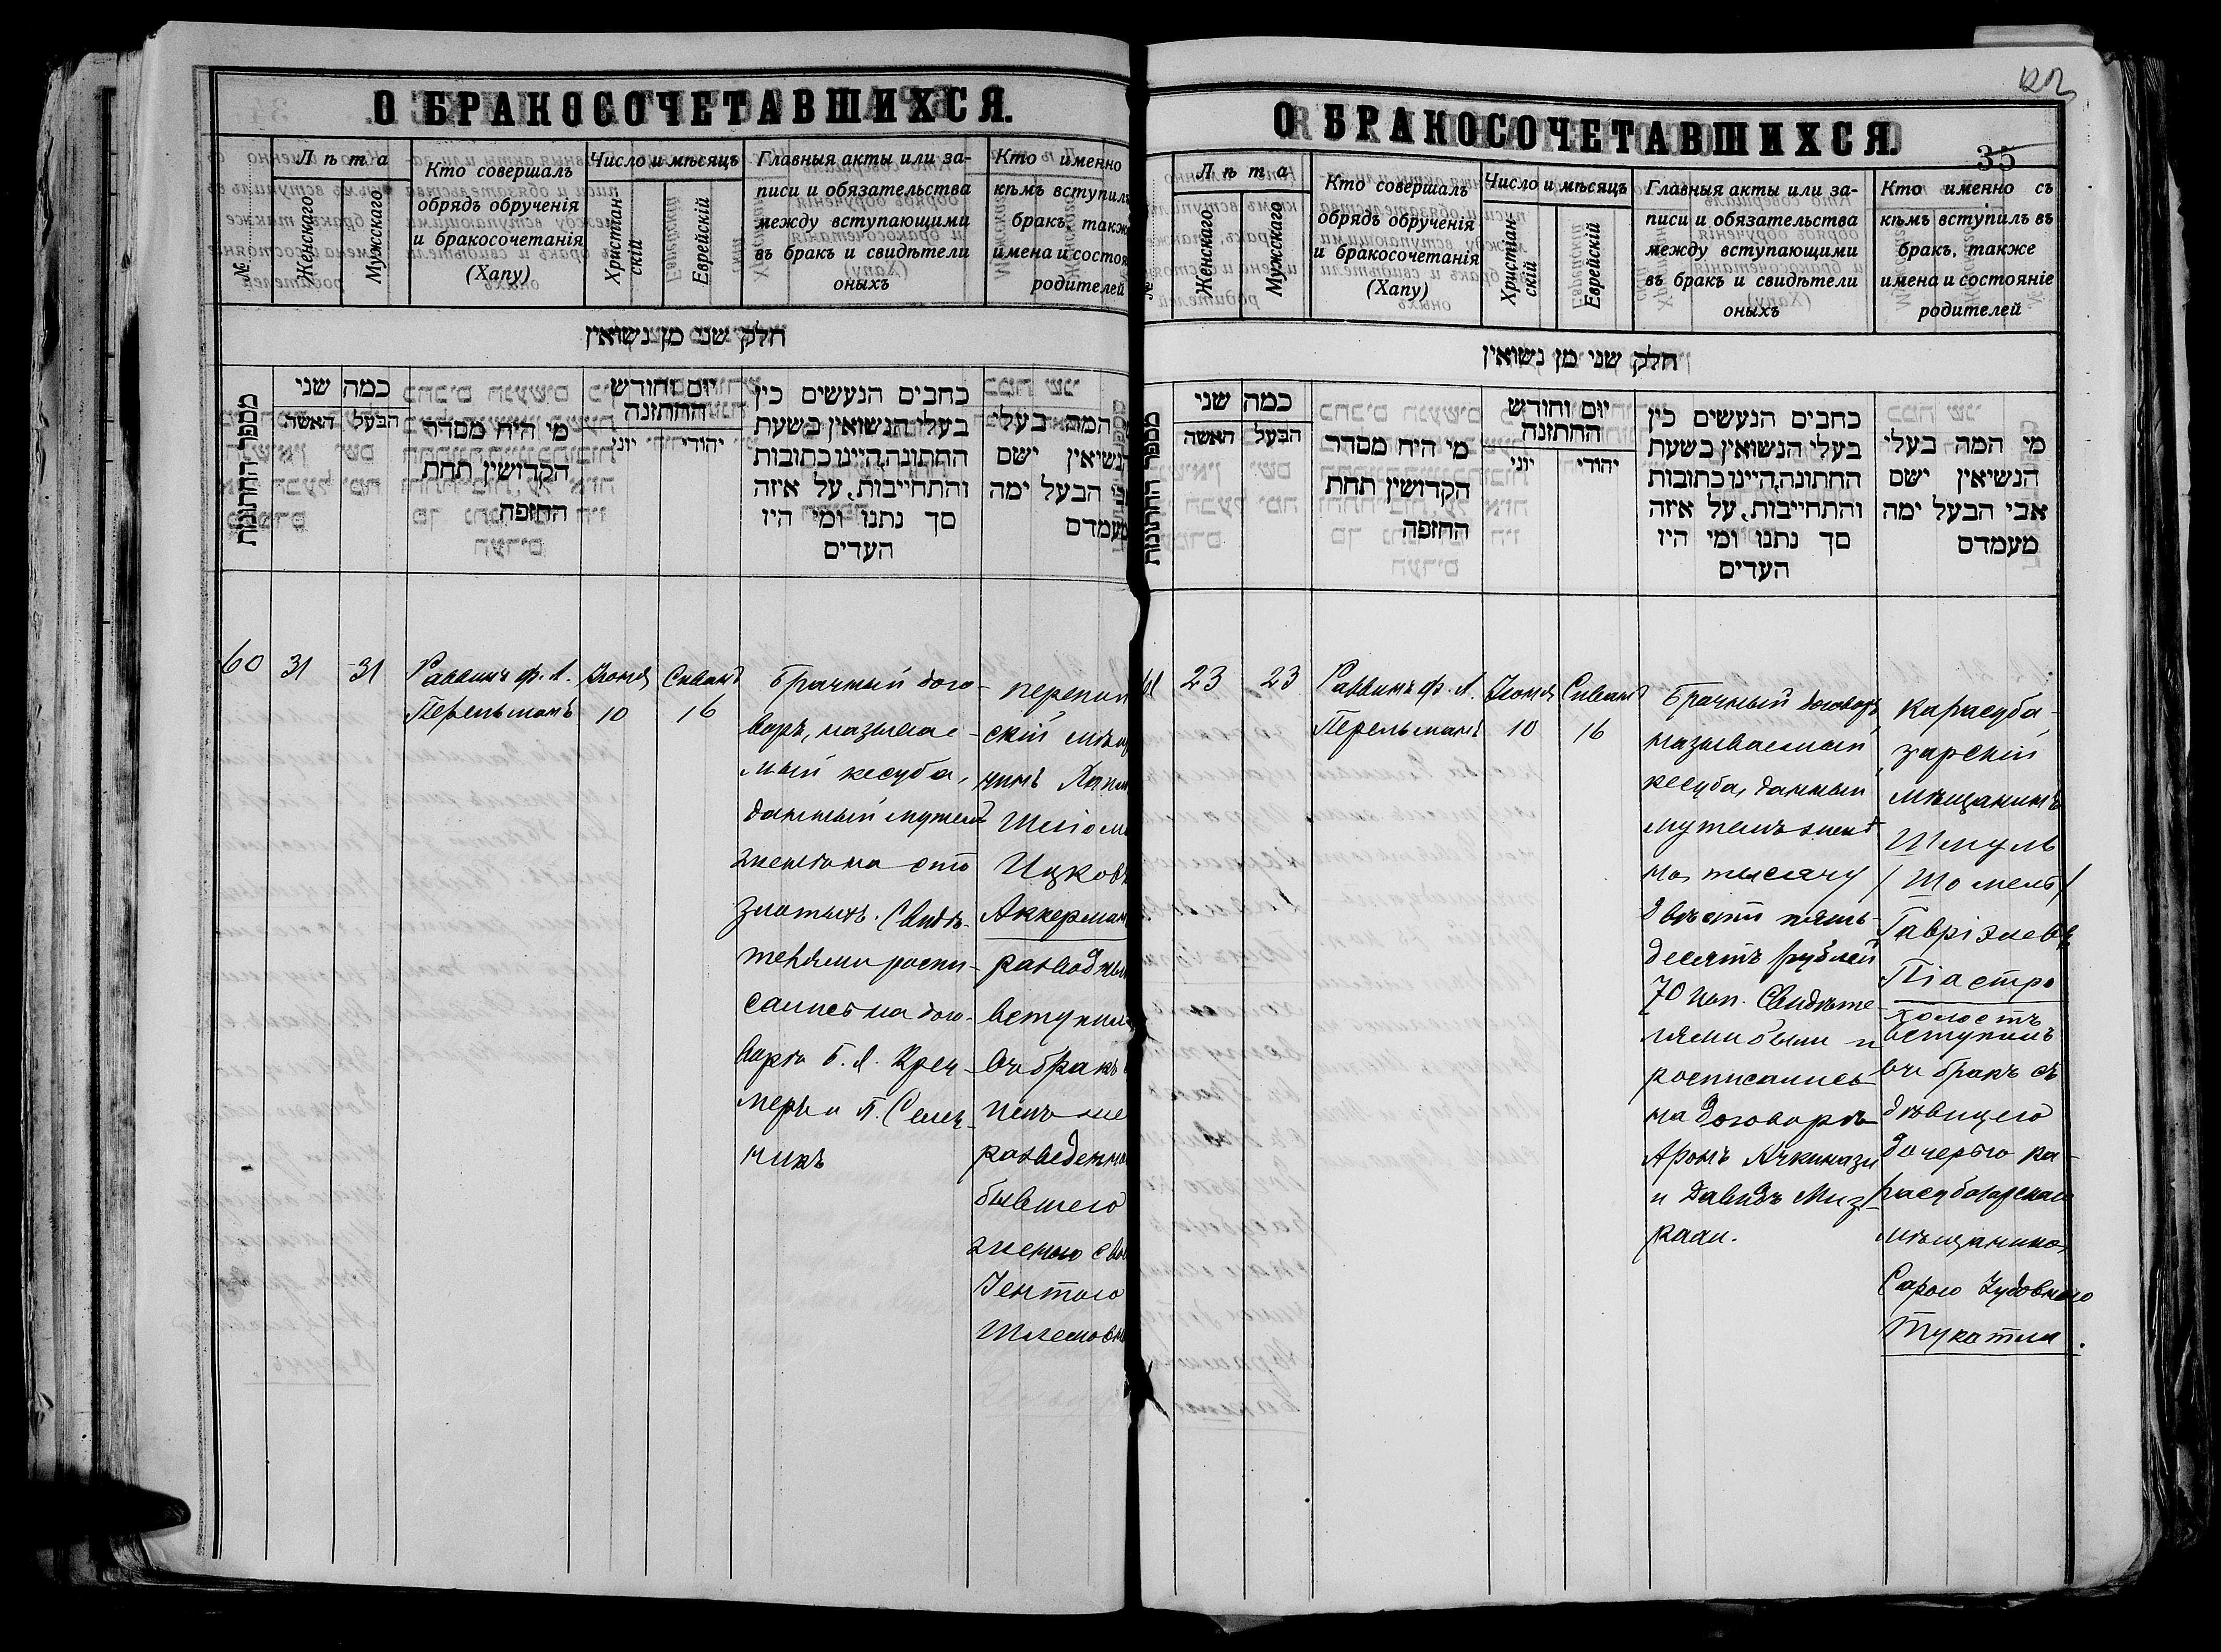 О БРАКОСОЧЕТАВШИХСЯ.
№
Лѣта
Женскаго
Мужскаго
Кто совершалъ
обрядъ обрученія
и бракосочетанія
(Хапу)
Число и мѣсяцъ
Христіан-
скій
Еврейскій
Главныя акты или за-
писи и обязательства
между вступающими
въ бракъ и свидѣтели
оныхъ
Кто именно
кѣмъ вступилъ
бракъ, также
имена и состоя
родителей
חלק שני מן נשואין
מספר החתונות
כמה שני
הבעל האשה
מי היה מסדר
הקדושין תחת
החופה
יום וחודש
החתונה
יהודי יוני
כתבים הנעשים בין
בעלי הנשואין בשעת
החתונה, היינו כתובות
והתחייבות, על איזה
סך נתנו ומי היו
העדים
המה בעלי
הנשיאין ישם
הבעל ימה
מעמדם
60
31
31
Раввинъ Ф. Л.
Перельманъ
Іюня
10
Сиванъ
16
Брачный дого-
воръ, называе-
мый кесуба,
данный мужемъ
женѣ на сто
злотыхъ. Свидѣ-
телями роспи-
сались на дого-
ворѣ Б. Л. Креч-
меръ и П. Селеч-
никъ
перекоп
скій мѣщ
нинъ
Шліом
Ицковъ
Аккерман
разводный
вступилъ
въ бракъ
нею же
разведенно
бывшею
женою сво
Іентою
Шлемовн
О БРАКОСОЧЕТАВШИХСЯ.
35
№
Лѣта
Женскаго
Мужскаго
Кто совершалъ
обрядъ обрученія
и бракосочетанія
(Хапу)
Число и мѣсяцъ
Христіан-
скій
Еврейскій
Главныя акты или за-
писи и обязательства
между вступающими
въ бракъ и свидѣтели
оныхъ
Кто именно съ
кѣмъ вступилъ въ
бракъ, также
имена и состояніе
родителей
חלק שני מן נשואין
מספר החתונות
כמה שני
הבעל האשה
מי היה מסדר
הקדושין תחת
החופה
יום וחודש
החתונה
יהודי יוני
כתבים הנעשים בין
בעלי הנשואין בשעת
החתונה, היינו כתובות
והתחייבות, על איזה
סך נתנו ומי היו
העדים
מי המה בעלי
הנשיאין ישם
אבי הבעל ימה
מעמדם
61
23
23
Раввинъ Ф. Л.
Перельманъ
Іюня
10
Сиванъ
16
Брачный договоръ,
называемый
кесуба, данный
мужемъ женѣ
на тысячу
двѣсти пять-
десятъ рублей
70 коп. Свидѣте-
лями были и
росписались
на договорѣ
Аронъ Ачкинази
и Давидъ Миз-
рахи.
Карасуба-
зарскій
мѣщанинъ
Шмуль
/Шомель/
Гавріэлевъ
Піастро
холостъ
вступилъ
въ бракъ съ
дѣвицею
дочерью ка-
расубазарскаго
мѣщанина
Сарою Іудовною
Тукатли.